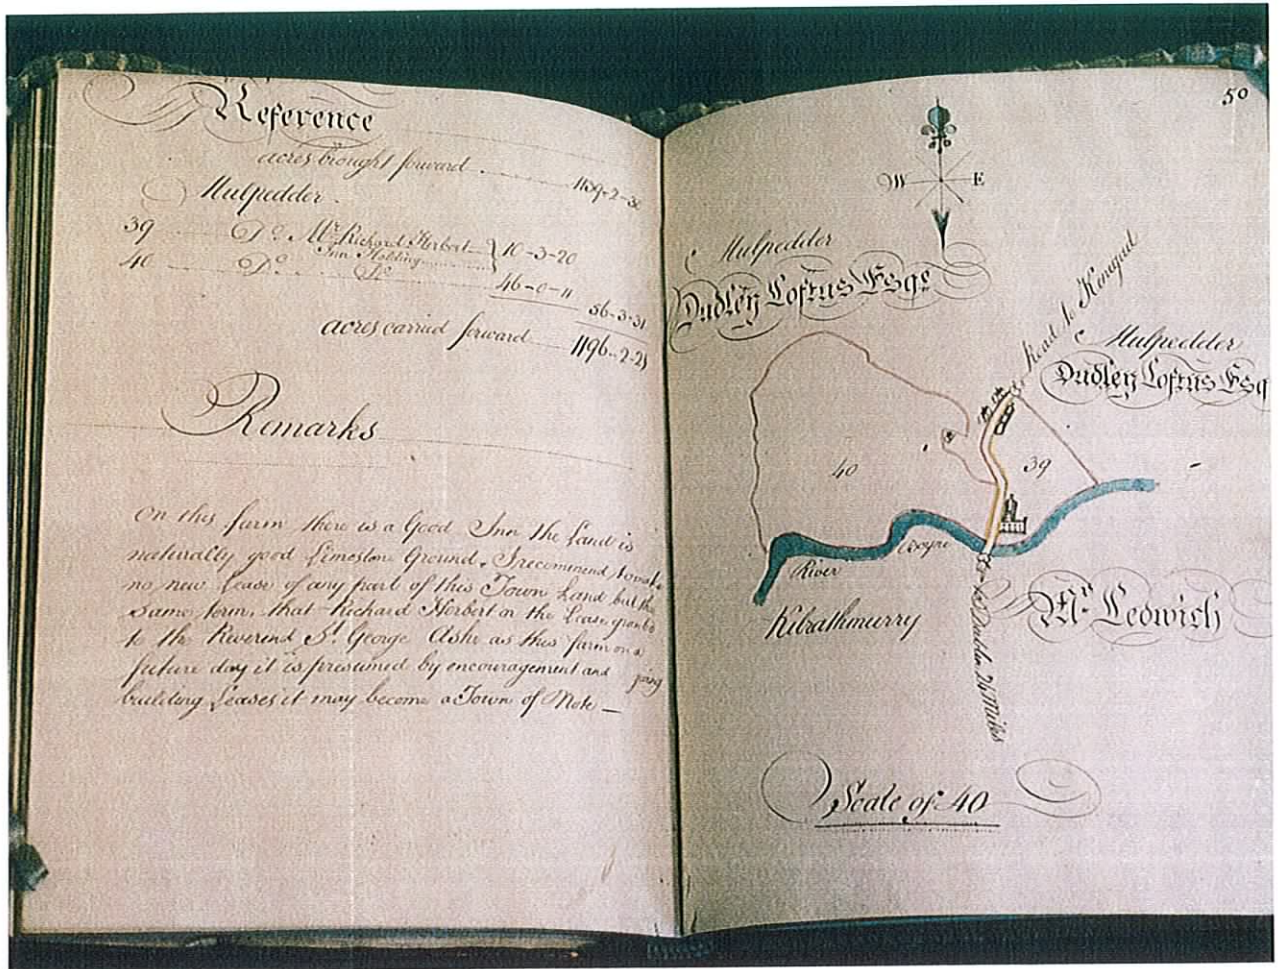 Reference
acres brought forward 1139-2-30
Mulpedder.
39 Do. Mr. Richard Herbert 10-3-20
Inn Holding
40 Do. Do. 46-0-11
56-3-31
acres carried forward 1196-2-21
Remarks
On this farm there is a Good Inn the Land is
naturally good Limeston Ground. I recommend to make
no new Lease of any part of this Town Land but the
same term that Richard Herbert or the Lease granted
to the Reverend St. George Ashe as this farm on a
future day it is presumed by encouragement and giving
building Leases it may become a Town of Note
50
W E
Mulpedder
Dudley Loftus Esqr.
Road to Kinegad
Mulpedder
Dudley Loftus Esq
40
39
River Boyne
Kilrathmurry
Mr. Ledwich
to Dublin 26 Miles
Scale of 40